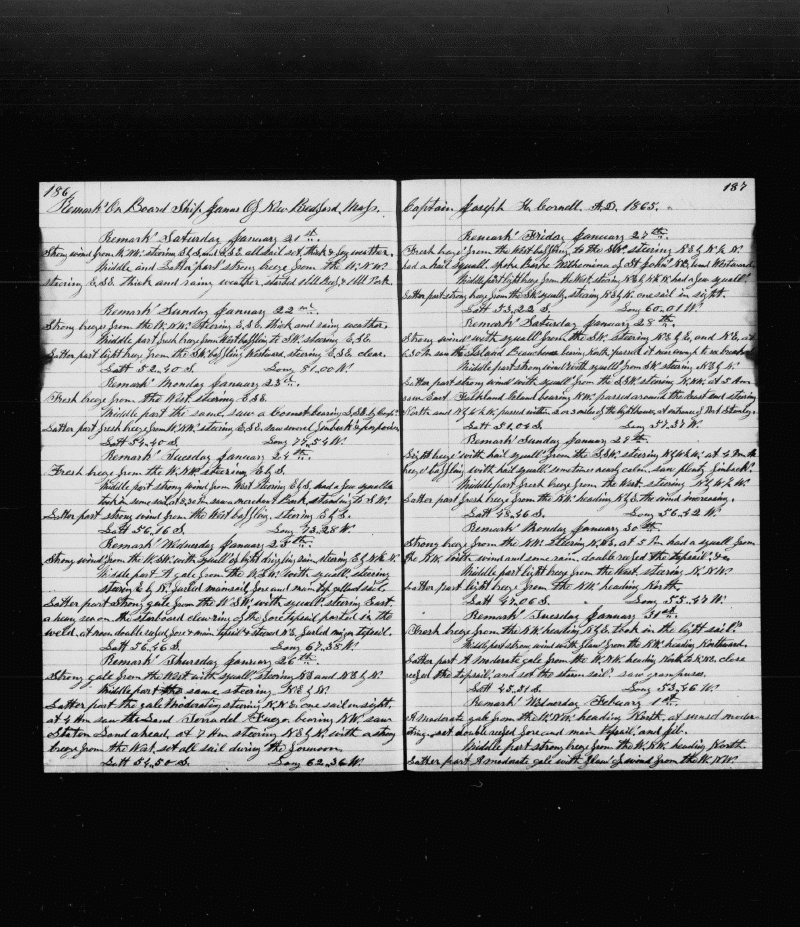 186
Remarks On Board Ship James Of New Bedford, Mass.
Remarks Saturday January 21st.
Strong wind from N.W. steering and E.S.E. all sail set, thick & fog weather.
Middle and Latter part strong breeze from the W.N.W.
steering E.S.E. thick and rainy weather, started old Beef & old Pork.
Remarks Sunday January 22nd.
Strong breeze from the W.N.W. steering E.S.E. thick and rainy weather.
Middle part fresh breeze from West baffling to SW. steering E.S.E.
Latter part light breeze from the SW. baffling Westward, steering E.S.E. clear.
Latt 52..40 S. Long 81.00 W.
Remarks Monday January 23rd.
Fresh breeze from the West. steering E.S.E.
Middle part the same. saw a Comet bearing S.S.E. by Comp.
Latter part fresh breeze from W.N.W. steering E.S.E. saw several finbacks & porpoises.
Latt 54..40 S. Long 77..54 W.
Remarks Tuesday January 24th.
Fresh breeze from the W.N.W. steering E by S.
Middle part strong wind from West steering E by S. had a few squalls
took in some sail, at 8.30 Am saw a merchant Bark, standing to N.W.
Latter part strong wind from the West baffling, steering E by S.
Latt 56..16 S. Long 73..28 W.
Remarks Wednesday January 25th.
Strong wind from the W.SW. with squalls of light drizzling rain, steering E by N & N.
Middle part A gale from the W.S.W. with squalls, steering
steering E by N. furled mainsail, fore and main topgallant sail.
Latter part Strong gale from the W.S.W. with squalls, steering East,
a heavy sea on the starboard clew ring of the fore topsail parted in the
weld. at noon double reefed fore & main topsails & steered N.E. furled mizen topsail.
Latt 56..46 S. Long 67..38 W.
Remarks Thursday January 26th.
Strong gale from the West with squalls, steering NE and N.E by N.
Middle part the same steering N.E by N.
Latter part the gale moderating steering N.N.E. one sail in sight,
at 4 Am saw the Land Terra del Fuego bearing N.W. saw
Staten Land ahead, at 7 Am steering N.E by N. with a strong
breeze from the West, set all sail during the forenoon.
Latt 54..50 S. Long 62..36 W.
187
Captain Joseph H. Cornell. A.D. 1865.
Remarks Friday January 27th.
Fresh breezes from the West baffling to the SW. steering N.E by N. & N.
had a hail squall. spoke Barke Wilhemina of St Johns NB. bound Westward.
Middle part light breeze from the West. steering N.E by N. had a few squalls.
Latter part strong breeze from the SW. squally, steering N.E by N. one sail in sight.
Latt 53..22 S. Long 60..01 W.
Remarks Saturday January 28th.
Strong winds with squalls from the SW. steering N.E by E. and N.E. at
6.30 Pm saw the Island Beauchene bearing North, passed it near enough to see breakers
Middle part strong wind with squalls from SW. steering N.E by N.
Latter part strong wind with squalls from the S.SW. steering N.NW. at 5 Am
saw East Falkland Island bearing NW. passed around the East end steering
North and N by W & W. passed within 2 or 3 miles of the lighthouse, at entrance of Port Stanley.
Latt 51..04 S. Long 57.37 W.
Remarks Sunday January 29th.
Light breeze with hail squalls from the S.SW. steering N by W & W. at 4 Pm the
breeze baffling with hail squalls sometimes nearly calm. saw plenty finbacks.
Middle part fresh breeze from the West. steering N by W & W.
Latter part fresh breeze from the NW. heading N by E. the wind increasing.
Latt 48..46 S. Long 56..42 W.
Remarks Monday January 30th.
Strong breeze from the NW. steering N.NE. at 5 Pm had a squall from
the NW. with wind and some rain, double reefed the topsails &c
Middle part light breeze from the West. steering N.NW.
Latter part light breeze from the NW. heading North.
Latt 47..06 S. Long 55..47 W.
Remarks Tuesday January 31st.
Fresh breeze from the NW. heading N by E. took in the light sails.
Middle part strong wind with flaws from the NW. heading Northward.
Latter part A moderate gale from the W.NW. heading North to N.NE. close
reefed the topsails, and set the storm sails. saw grampuses.
Latt 45..31 S. Long 53..46 W.
Remarks Wednesday February 1st.
A moderate gale from the W.NW. heading North, at sunset moder-
ating, set double reefed fore and main topsails and jib.
Middle part strong breeze from the W.NW. heading North.
Latter part A moderate gale with flaws of wind from the W.NW.